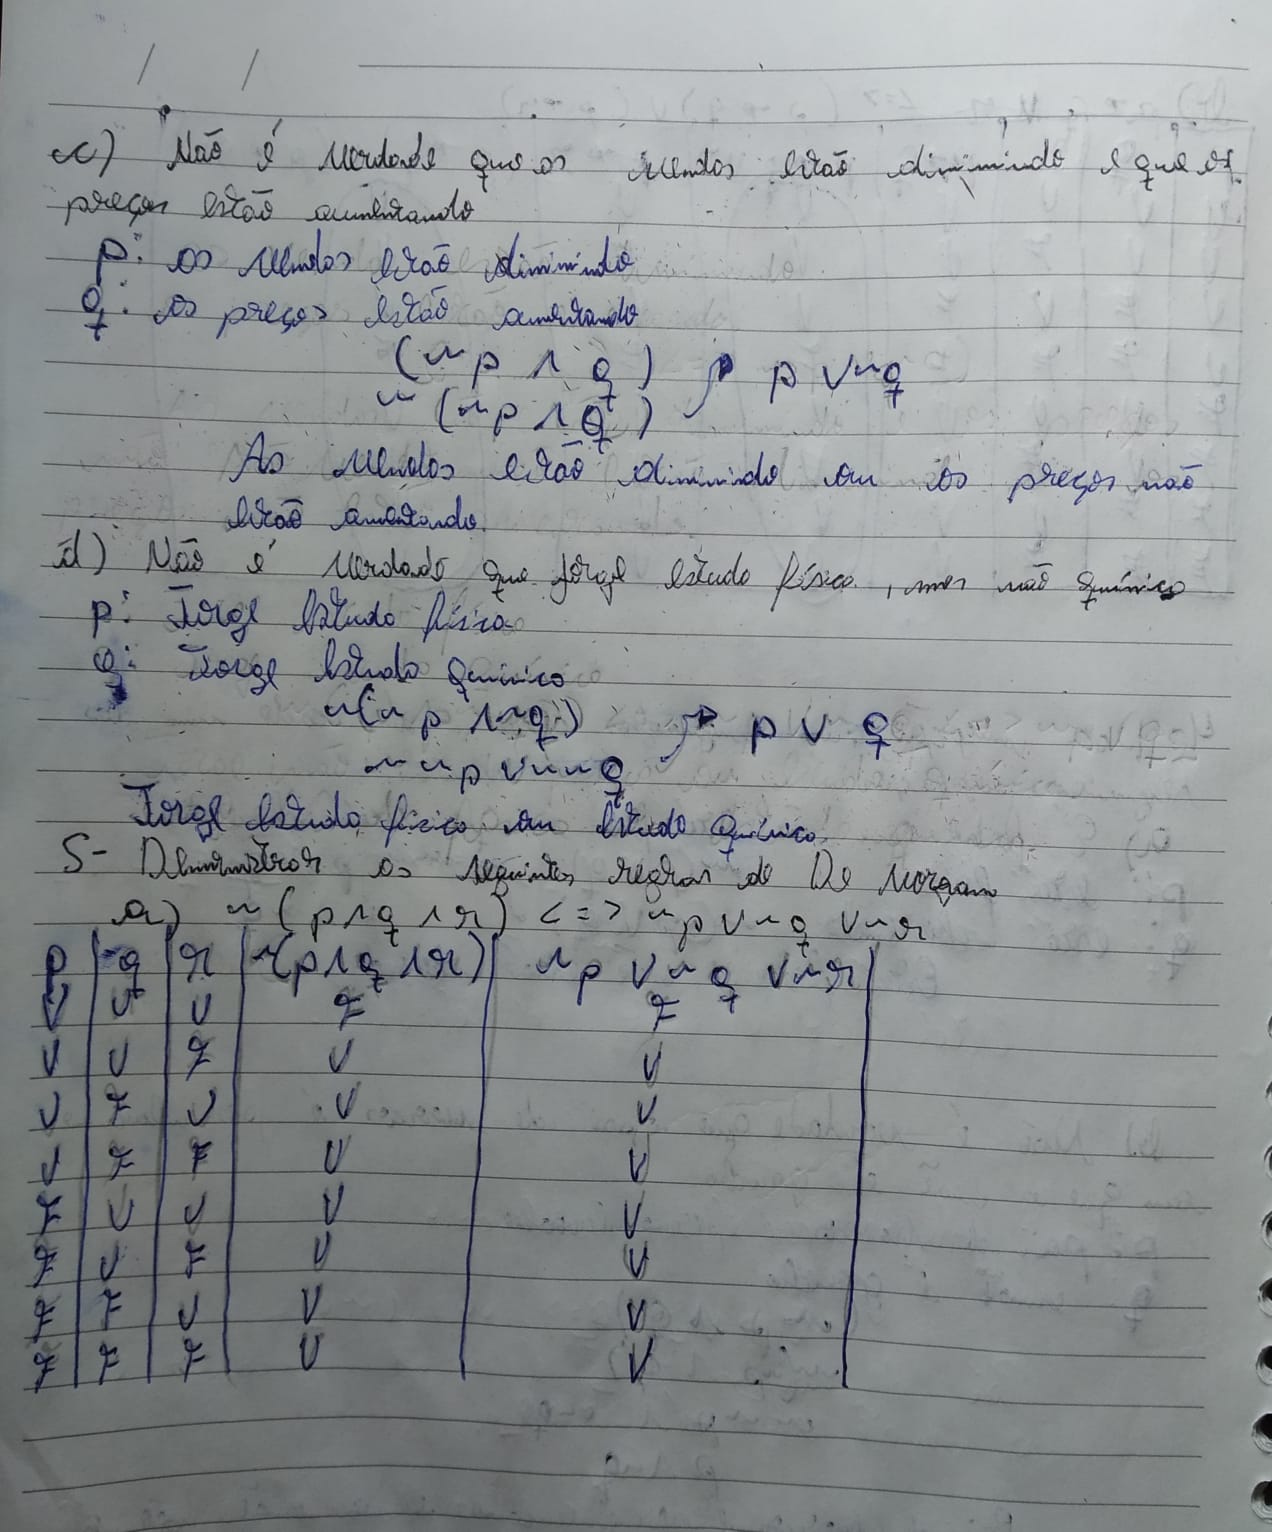 c) Não é verdade que as vendas estão diminindo e que os
preços estão aumentando
p: as vendas estão diminindo
q: os preços estão aumentando
(~p ∧ q) p ∨ ~q
~(~p ∧ q)
As vendas estão diminindo ou os preços não
estão aumentando.
d) Não é verdade que Jorge estuda física, mas não química
p: Jorge estuda física
q: Jorge estuda química
~(~p ∧ ~q) → p ∨ q
~~p ∨ ~~q
Jorge estuda física ou estuda química
5- Demonstrar as seguintes regras de De Morgan
a) ~(p ∧ q ∧ r) <=> ~p ∨ ~q ∨ ~r
p | q | r | ~(p ∧ q ∧ r) | ~p ∨ ~q ∨ ~r |
V | V | V | F | F
V | V | F | V | V
V | F | V | V | V
V | F | F | V | V
F | V | V | V | V
F | V | F | V | V
F | F | V | V | V
F | F | F | V | V